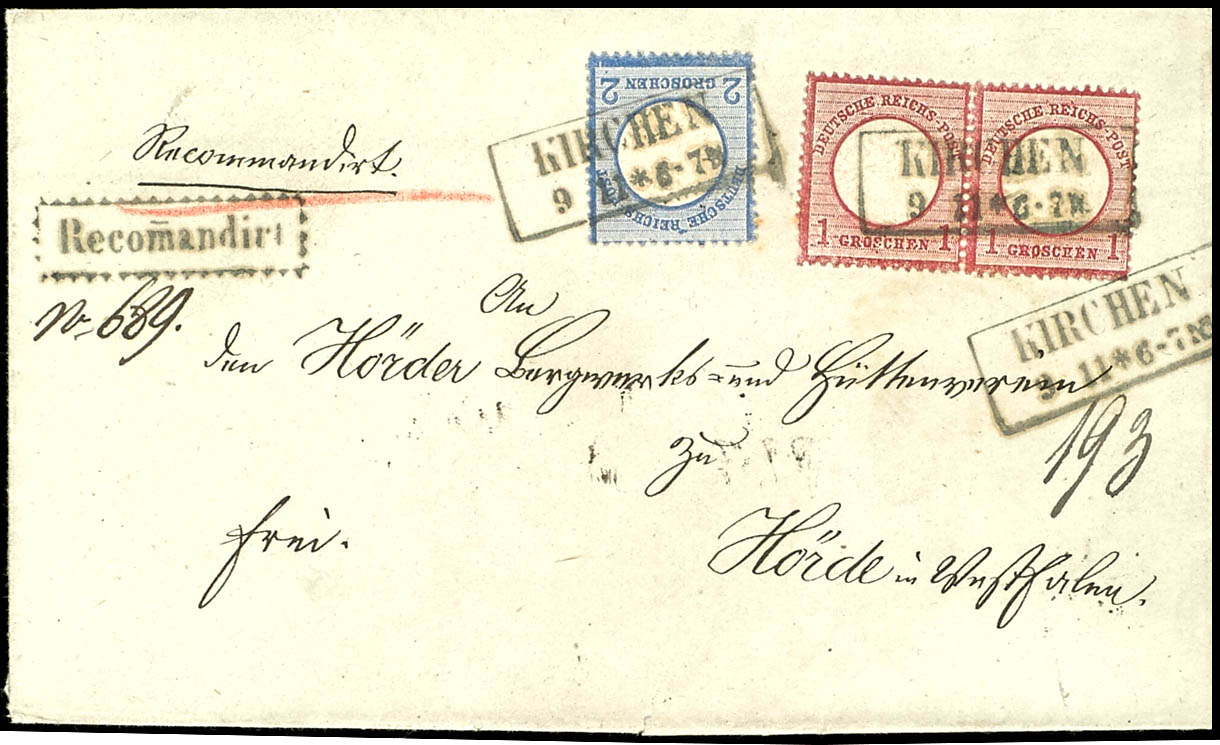 Recommandirt.
Recom̄andirt
No 689.
2 GROSCHEN 2
DEUTSCHE REICHS-POST
KIRCHEN
9 11 * 6-7N
DEUTSCHE REICHS-POST
1 GROSCHEN 1
DEUTSCHE REICHS-POST
1 GROSCHEN 1
KIRCHEN
9 11 * 6-7N
KIRCHEN
9 11 * 6-7N
An
den Hörder Bergwerks- und Hüttenverein
zu
193
frei.
Hörde in Westfalen.